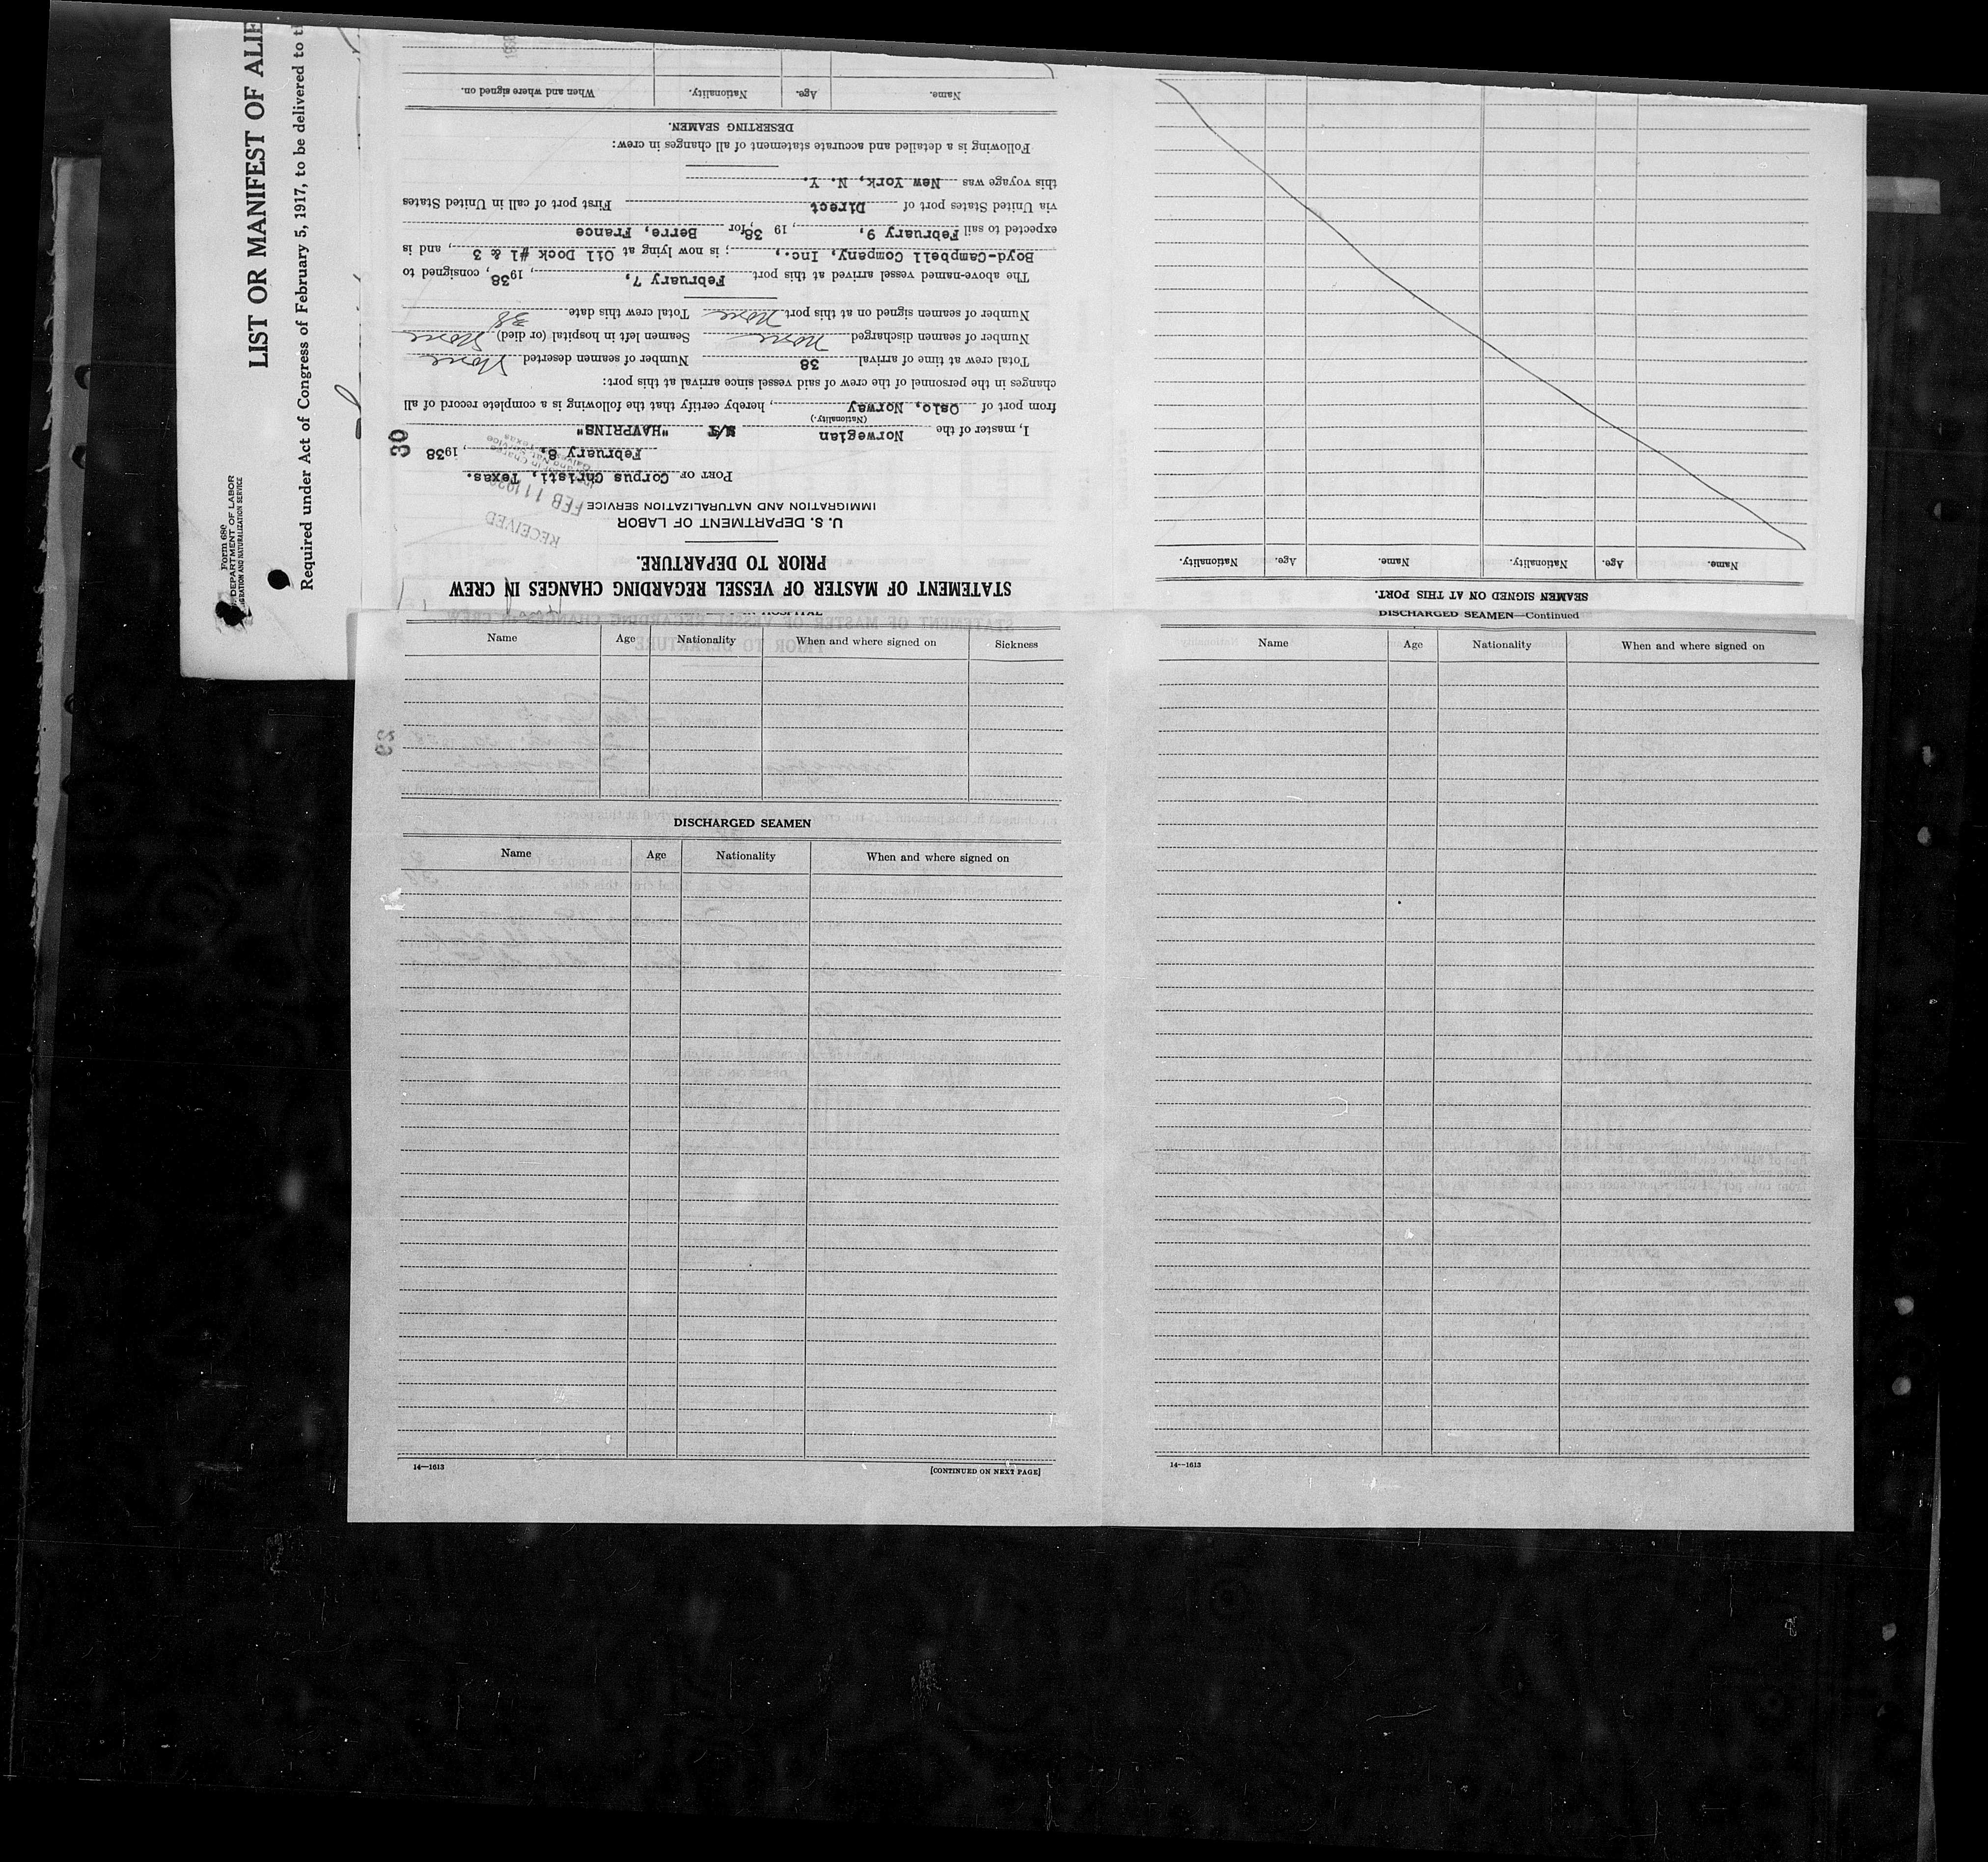 Form 680
U. S. DEPARTMENT OF LABOR
IMMIGRATION AND NATURALIZATION SERVICE
LIST OR MANIFEST OF ALIE
Required under Act of Congress of February 5, 1917, to be delivered to th
STATEMENT OF MASTER OF VESSEL REGARDING CHANGES IN CREW
PRIOR TO DEPARTURE.
U. S. DEPARTMENT OF LABOR
IMMIGRATION AND NATURALIZATION SERVICE
RECEIVED
FEB 11 1938
PORT OF Corpus Christi, Texas.
February 8, 1938
30
I, master of the Norwegian M/T "HAVPRINS"
(Nationality.)
from port of Oslo, Norway, hereby certify that the following is a complete record of all
changes in the personnel of the crew of said vessel since arrival at this port:
Total crew at time of arrival 38 Number of seamen deserted None
Number of seamen discharged None Seamen left in hospital (or died) None
Number of seamen signed on at this port None Total crew this date 38
The above-named vessel arrived at this port February 7, 1938, consigned to
Boyd-Campbell Company, Inc., ; is now lying at Oil Dock #1 & 3, and is
expected to sail February 9, 1938, for Berre, France
via United States port of Direct First port of call in United States
this voyage was New York, N. Y.
Following is a detailed and accurate statement of all changes in crew:
DESERTING SEAMEN.
Name. Age. Nationality. When and where signed on.
SEAMEN SIGNED ON AT THIS PORT.
Name. Age. Nationality. Name. Age. Nationality.
Name Age Nationality When and where signed on Sickness
62
DISCHARGED SEAMEN
Name Age Nationality When and where signed on
14—1613
[CONTINUED ON NEXT PAGE]
DISCHARGED SEAMEN—Continued
Name Age Nationality When and where signed on
14—1613